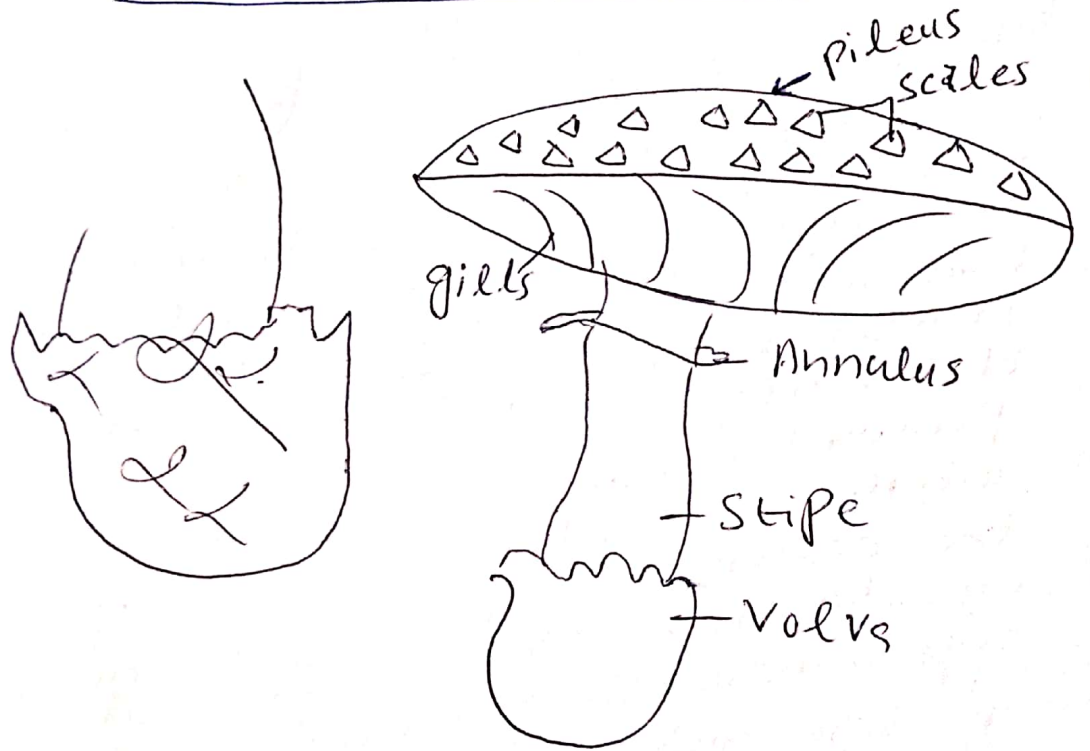 pileus
scales
gills
Annulus
Stipe
Volva